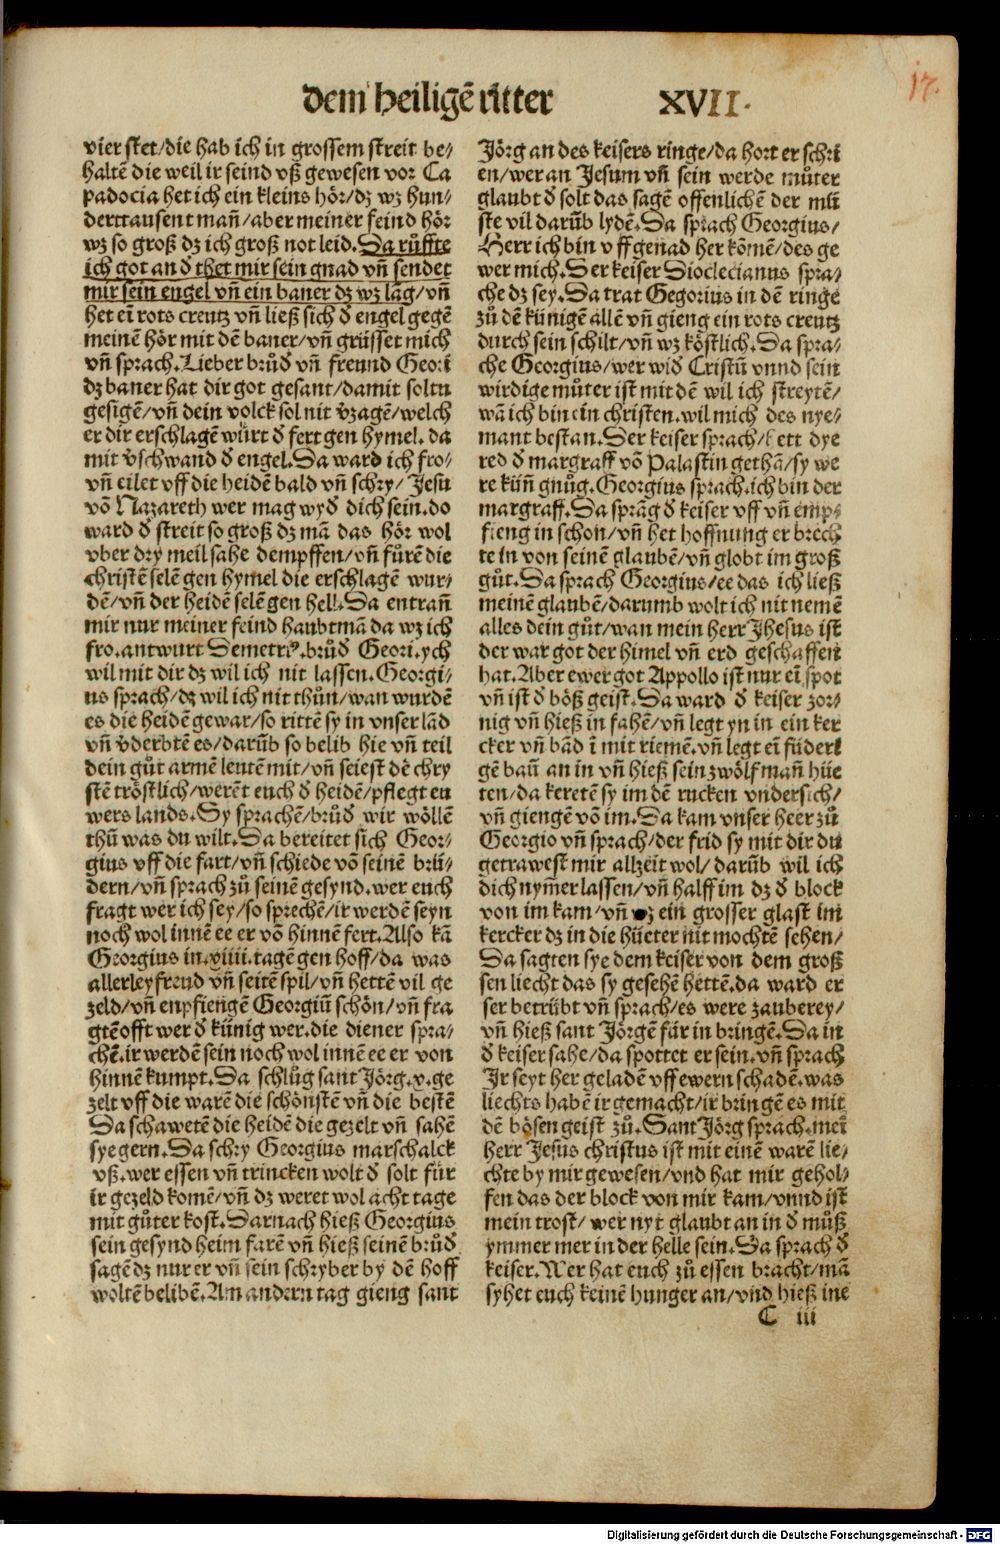 dem heiligē ritter XVII.
17.
vier stet/die hab ich in grossem streit be/
haltē die weil ir seind vß gewesen vor Ca
padocia het ich ein kleins hör/dz wz hun/
derttausent man̄/aber meiner feind hör
wz so groß dz ich groß not leid.Da růffte
ich got an d thet mir sein gnad vn̄ sendet
mir sein engel vn̄ ein baner dz wz lāg/vn̄
het eī rots creutz vn̄ ließ sich d engel gegē
meinē hör mit dē baner/vn̄ grüsset mich
vn̄ sprach.Lieber brůd vn̄ freund Geori
dz baner hat dir got gesant/damit soltu
gesigē/vn̄ dein volck sol nit v̄zagē/welch
er dir erschlagē würt d fert gen hymel.da
mit v̄schwand d engel.Da ward ich fro/
vn̄ eilet vff die heidē bald vn̄ schry/Jesu
vō Nazareth wer mag wyd dich sein.do
ward d streit so groß dz mā das hör wol
vber dry meil sahe dempffen/vn̄ fürē die
christē selē gen hymel die erschlagē wur/
dē/vn̄ der heidē selē gen hell.Da entran̄
mir nur meiner feind haubtmā da wz ich
fro.antwurt Demetri⁹.brůd Geori.ych
wil mit dir dz wil ich nit lassen.Georgi/
us sprach/dz wil ich nit thůn/wan wurdē
es die heidē gewar/so rittē sy in vnser lād
vn̄ v̄derbtē es/darūb so belib hie vn̄ teil
dein gůt armē leutē mit/vn̄ seiest dē chry
stē tröstlich/werēt euch d heidē/pflegt eu
wers lands.Sy sprachē/brůd wir wöllē
thů was du wilt.Da bereitet sich Geor/
gius vff die fart/vn̄ schiede vō seinē brü/
dern/vn̄ sprach zů seinē gesynd.wer euch
fragt wer ich sey/so sprechē/ir werdē seyn
noch wol innē ee er vō hinnē fert.Also kā
Georgius in.xiiii.tagē gen hoff/da was
allerley freud vn̄ seitē spil/vn̄ hettē vil ge
zeld/vn̄ enpfiengē Georgiū schön/vn̄ fra
gtē offt wer d künig wer.die diener spra/
chē.ir werdē sein noch wol innē ee er von
hinnē kumpt.Da schlůg sant Jörg.x.ge
zelt vff die warē die schönstē vn̄ die bestē
Da schawetē die heidē die gezelt vn̄ sahē
sye gern.Da schry Georgius marschalck
vß.wer essen vn̄ trincken wolt d solt für
ir gezeld komē/vn̄ dz weret wol acht tage
mit gůter kost.Darnach hieß Georgius
sein gesynd heim farē vn̄ hieß seinē brůd
sagē dz nur er vn̄ sein schryber by dē hoff
woltē belibē.Am andern tag gieng sant
Jörg an des keisers ringe/da hort er schri
en/wer an Jesum vn̄ sein werde můter
glaubt d solt das sagē offenlichē der mü
ste vil darūb lydē.Da sprach Georgius/
Herr ich bin vff genad her kōmē/des ge
wer mich.Der keiser Dioclecianus spra/
che dz sey.Da trat Gegorius in dē ringe
zů dē künigē allē vn̄ gieng ein rots creutz
durch sein schilt/vn̄ wz köstlich.Da spra/
che Georgius/wer wid Cristū vnnd sein
wirdige můter ist mit dē wil ich streytē/
wā ich bin ein christen.wil mich des nye/
mant bestan.Der keiser sprach/hett dye
red d margraff vō Palastin gethā/sy we
re kün̄ gnůg.Georgius sprach.ich bin der
margraff.Da sprāg d keiser vff vn̄ emp/
fieng in schon/vn̄ het hoffnung er brech
te in von seinē glaubē/vn̄ globt im groß
gůt.Da sprach Georgius/ee das ich ließ
meinē glaubē/darumb wolt ich nit nemē
alles dein gůt/wan mein herr Jhesus ist
der war got der himel vn̄ erd geschaffen
hat.Aber ewer got Appollo ist nur eī spot
vn̄ ist d böß geist.Da ward d keiser zor/
nig vn̄ hieß in fahē/vn̄ legt yn in ein ker
cker vn̄ bād ī mit riemē.vn̄ legt eī füderi
gē baū an in vn̄ hieß sein zwölf man̄ hüe
ten/da keretē sy im dē rucken vndersich/
vn̄ giengē vō im.Da kam vnser heer zů
Georgio vn̄ sprach/der frid sy mit dir du
getrawest mir allzeit wol/darūb wil ich
dich nym̄er lassen/vn̄ halff im dz d block
von im kam/vn̄ wz ein grosser glast im
kercker dz in die hüeter nit mochtē sehen/
Da sagten sye dem keiser von dem groß
sen liecht das sy gesehē hettē.da ward er
ser betrübt vn̄ sprach/es were zauberey/
vn̄ hieß sant Jörgē für in bringē.Da in
d keiser sahe/da spottet er sein.vn̄ sprach
Jr seyt her geladē vff ewern schadē.was
liechts habē ir gemacht/ir bringē es mit
dē bösen geist zů.Sant Jörg sprach.meī
herr Jesus christus ist mit einē warē lie/
chte by mir gewesen/vnd hat mir gehol/
fen das der block von mir kam/vnnd ist
mein trost/wer nyt glaubt an in d můß
ymmer mer in der helle sein.Da sprach d
keiser.Wer hat euch zů essen bracht/mā
syhet euch keinē hunger an/vnd hieß ine
C iii
Digitalisierung gefördert durch die Deutsche Forschungsgemeinschaft - DFG